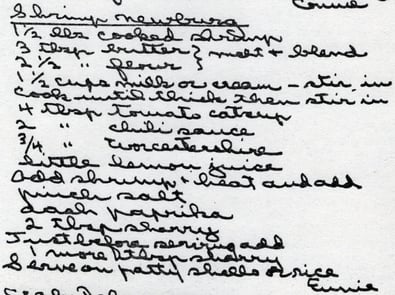 Connie
Shrimp newburg
1 1/2 lbs cooked shrimp
3 tbsp butter } melt & blend
2 1/2 " flour }
1 1/2 cups milk or cream - stir in
cook until thick then stir in
4 tbsp tomato catsup
2 " chili sauce
3/4 " worcestershire
little lemon juice
add shrimp & heat and add
pinch salt
dash paprika
2 tbsp sharry
Just before serving add
1 more tbsp sharry
Serve on patty shells or rice
Eunie